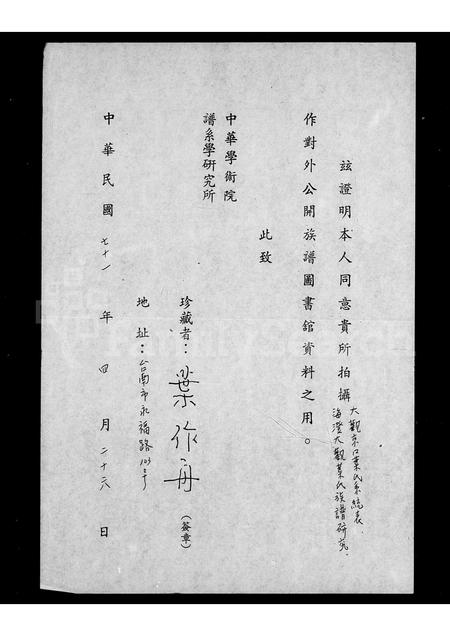 茲證明本人同意貴所拍攝
大觀京口葉氏系統表.
海澄大觀葉氏族譜研究.
作對外公開族譜圖書館資料之用。
此致
中華學術院
譜系學研究所
珍藏者：葉作舟（簽章）
地址：台南市永福路103号
中華民國七十一年四月二十六日